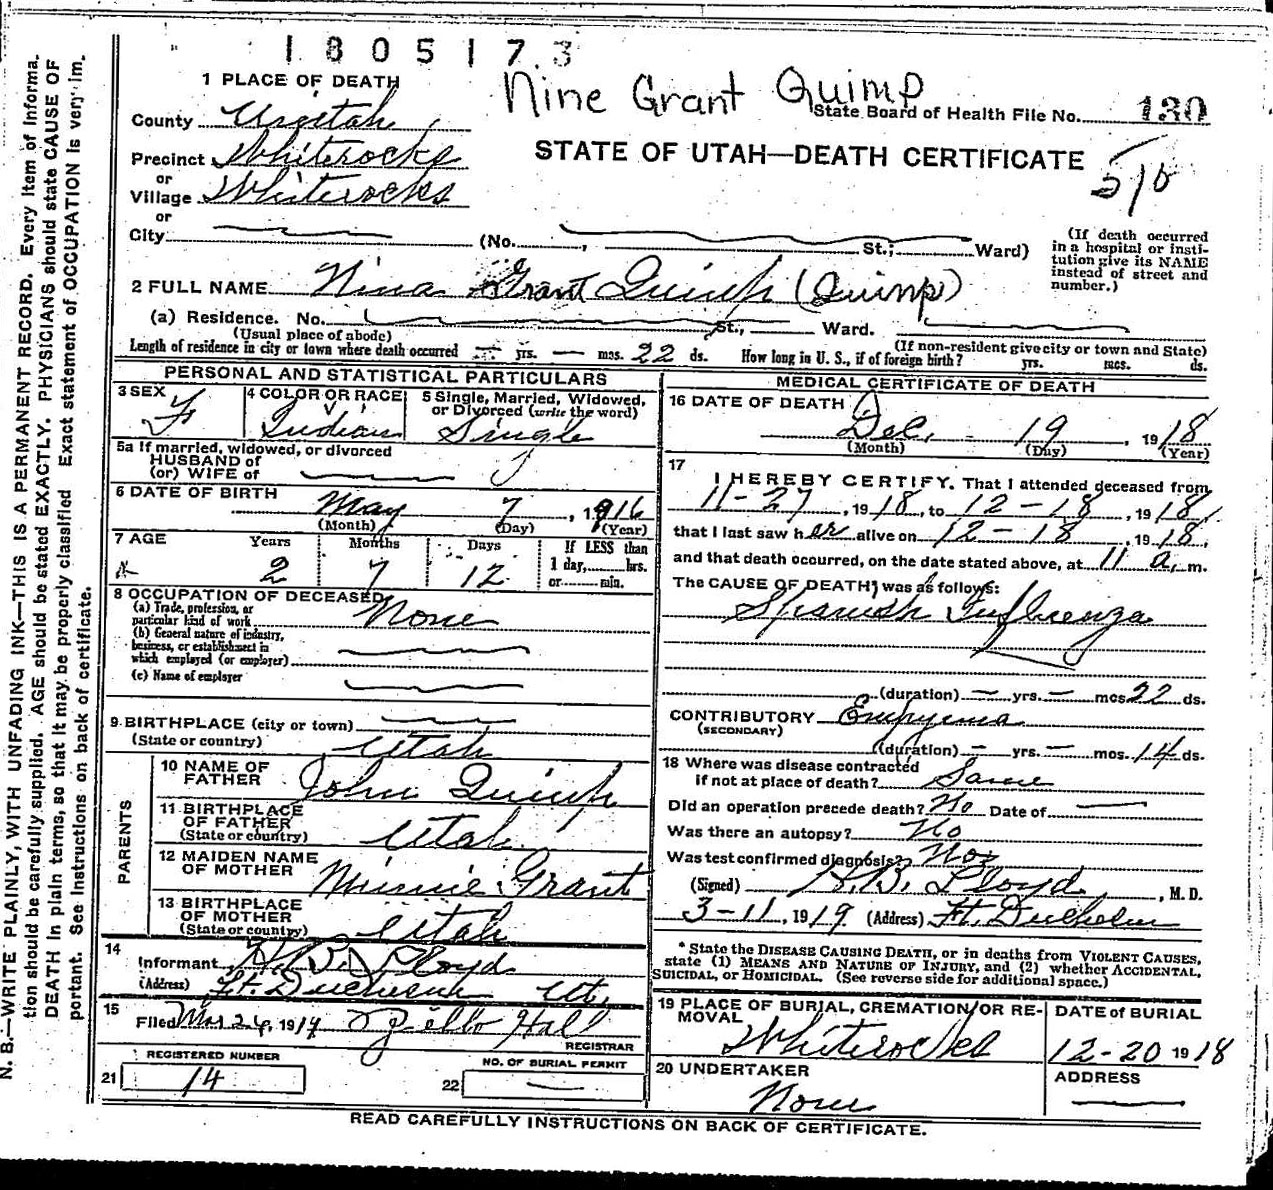 1 8 0 5 1 7 3
Nine Grant Quimp
1 PLACE OF DEATH
State Board of Health File No. 130
County Uintah
STATE OF UTAH—DEATH CERTIFICATE
510
Precinct Whiterocks
or
Village Whiterocks
or
City (No. , St.; Ward)
(If death occurred in a hospital or institution give its NAME instead of street and number.)
2 FULL NAME Nina Grant Quimp (Quimp)
(a) Residence. No. St., Ward.
(Usual place of abode) (If non-resident give city or town and State)
Length of residence in city or town where death occurred — yrs. — mos. 22 ds. How long in U. S., if of foreign birth? yrs. mos. ds.
PERSONAL AND STATISTICAL PARTICULARS
3 SEX F
4 COLOR OR RACE Indian
5 Single, Married, Widowed, or Divorced (write the word) Single
5a If married, widowed, or divorced
HUSBAND of
(or) WIFE of
6 DATE OF BIRTH May 7, 1916
(Month) (Day) (Year)
7 AGE Years Months Days If LESS than
2 7 12 1 day, hrs.
or min.
8 OCCUPATION OF DECEASED
(a) Trade, profession, or particular kind of work None
(b) General nature of industry, business, or establishment in which employed (or employer)
(c) Name of employer
9 BIRTHPLACE (city or town)
(State or country) Utah
PARENTS
10 NAME OF FATHER John Quimp
11 BIRTHPLACE OF FATHER (State or country) Utah
12 MAIDEN NAME OF MOTHER Minnie Grant
13 BIRTHPLACE OF MOTHER (State or country) Utah
14
Informant H. B. Lloyd
(Address) Ft. Duchesne Ut.
15
Filed Mar 26, 1919 Hall
REGISTRAR
REGISTERED NUMBER
21 14
NO. OF BURIAL PERMIT
22 —
MEDICAL CERTIFICATE OF DEATH
16 DATE OF DEATH
Dec. 19, 1918
(Month) (Day) (Year)
17
I HEREBY CERTIFY. That I attended deceased from
11-27, 1918, to 12-18, 1918,
that I last saw her alive on 12-18, 1918,
and that death occurred, on the date stated above, at 11 a. m.
The CAUSE OF DEATH* was as follows:
Spanish Influenza
(duration) — yrs. — mos 22 ds.
CONTRIBUTORY Empyema
(SECONDARY)
(duration) — yrs. — mos. 14 ds.
18 Where was disease contracted
if not at place of death? Same
Did an operation precede death? No Date of —
Was there an autopsy? No
Was test confirmed diagnosis? No
(Signed) H.B. Lloyd, M.D.
3-11, 1919 (Address) Ft. Duchesne
* State the DISEASE CAUSING DEATH, or in deaths from VIOLENT CAUSES,
state (1) MEANS AND NATURE OF INJURY, and (2) whether ACCIDENTAL,
SUICIDAL, or HOMICIDAL. (See reverse side for additional space.)
19 PLACE OF BURIAL, CREMATION/OR REMOVAL
Whiterocks
DATE OF BURIAL
12-20 1918
20 UNDERTAKER
None
ADDRESS
READ CAREFULLY INSTRUCTIONS ON BACK OF CERTIFICATE.
N. B.—WRITE PLAINLY, WITH UNFADING INK—THIS IS A PERMANENT RECORD. Every item of Informa-
tion should be carefully supplied. AGE should be stated EXACTLY. PHYSICIANS should state CAUSE OF
DEATH In plain terms, so that it may be properly classified Exact statement of OCCUPATION is very im-
portant. See Instructions on back of certificate.